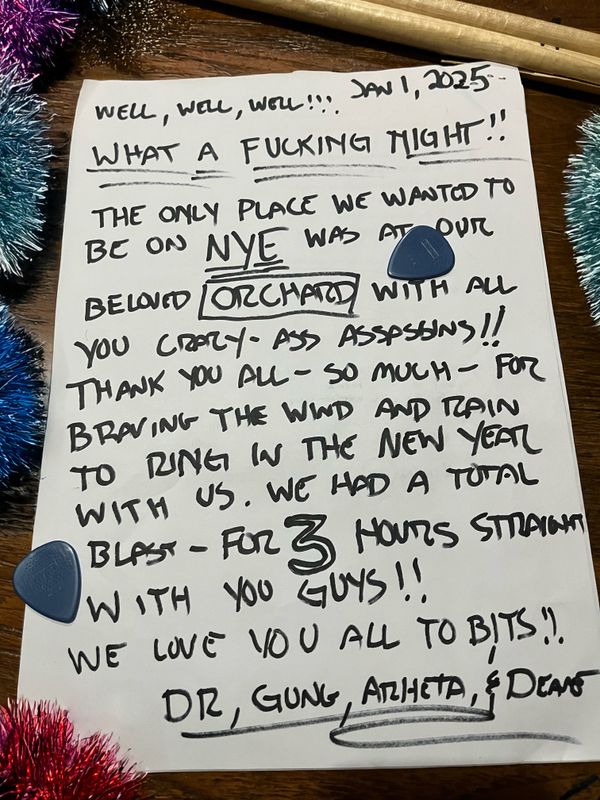 WELL, WELL, WELL!!! JAN 1, 2025
WHAT A FUCKING NIGHT!!
THE ONLY PLACE WE WANTED TO
BE ON NYE WAS AT OUR
BELOVED ORCHARD WITH ALL
YOU CRAZY-ASS ASSASSINS!!
THANK YOU ALL - SO MUCH - FOR
BRAVING THE WIND AND RAIN
TO RING IN THE NEW YEAR
WITH US. WE HAD A TOTAL
BLAST - FOR 3 HOURS STRAIGHT
WITH YOU GUYS!!
WE LOVE YOU ALL TO BITS!!
DR, GUNG, ARHETA, & DEANE